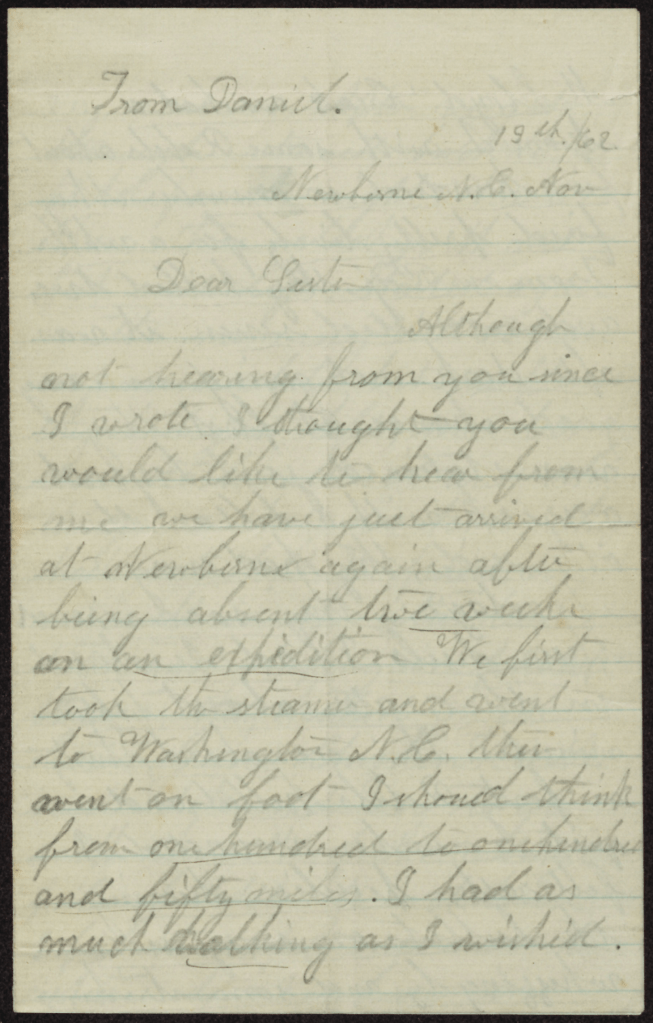 From Daniel.
19th/62
Newberne N.C. Nov
Dear Sister
Although
not hearing from you since
I wrote I thought you
would like to hear from
me we have just arrived
at Newberne again after
being absent two weeks
on an expedition We first
took the steamer and went
to Washington N.C. then
went on foot I should think
from one hundred to one hundred
and fifty miles. I had as
much walking as I wished.